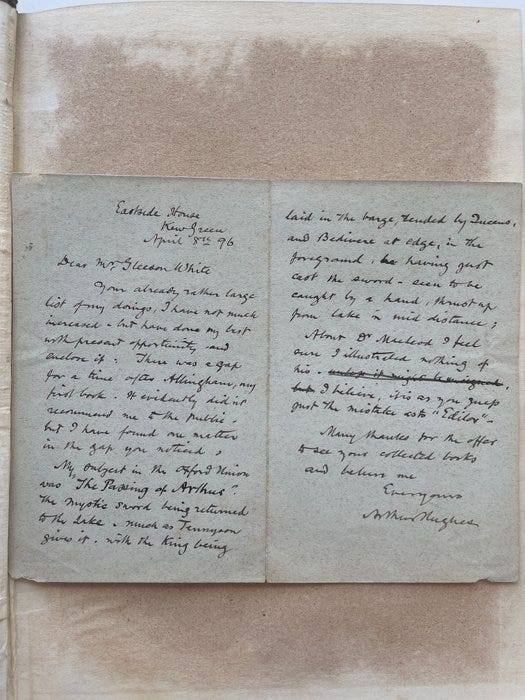 Eastside House
Kew Green
April 8th 96
Dear Mr. Gleeson White
Your already rather large
list of my doings, I have not much
increased - but have done my best
with present opportunity and
enclose it : There was a gap
for a time after Allingham, my
first book. It evidently didn't
recommend me to the Public -
but I have found one matter
in the gap you noticed ,
My subject in the Oxford Union
was "The Passing of Arthur".
The mystic sword being returned
to the Lake - much as Tennyson
gives it - with the King being
laid in the barge, tended by Queens,
and Bedivere at edge, in the
foreground, having just
cast the sword - seen to be
caught by a hand, thrust up
from lake in mid distance ;
About Dr Macleod I feel
sure I illustrated nothing of
his - unless it might be unsigned,
but I believe, it is as you guess
just the mistake as to "Editor" -
Many thanks for the offer
to see your collected books
and believe me
Ever yours
Arthur Hughes